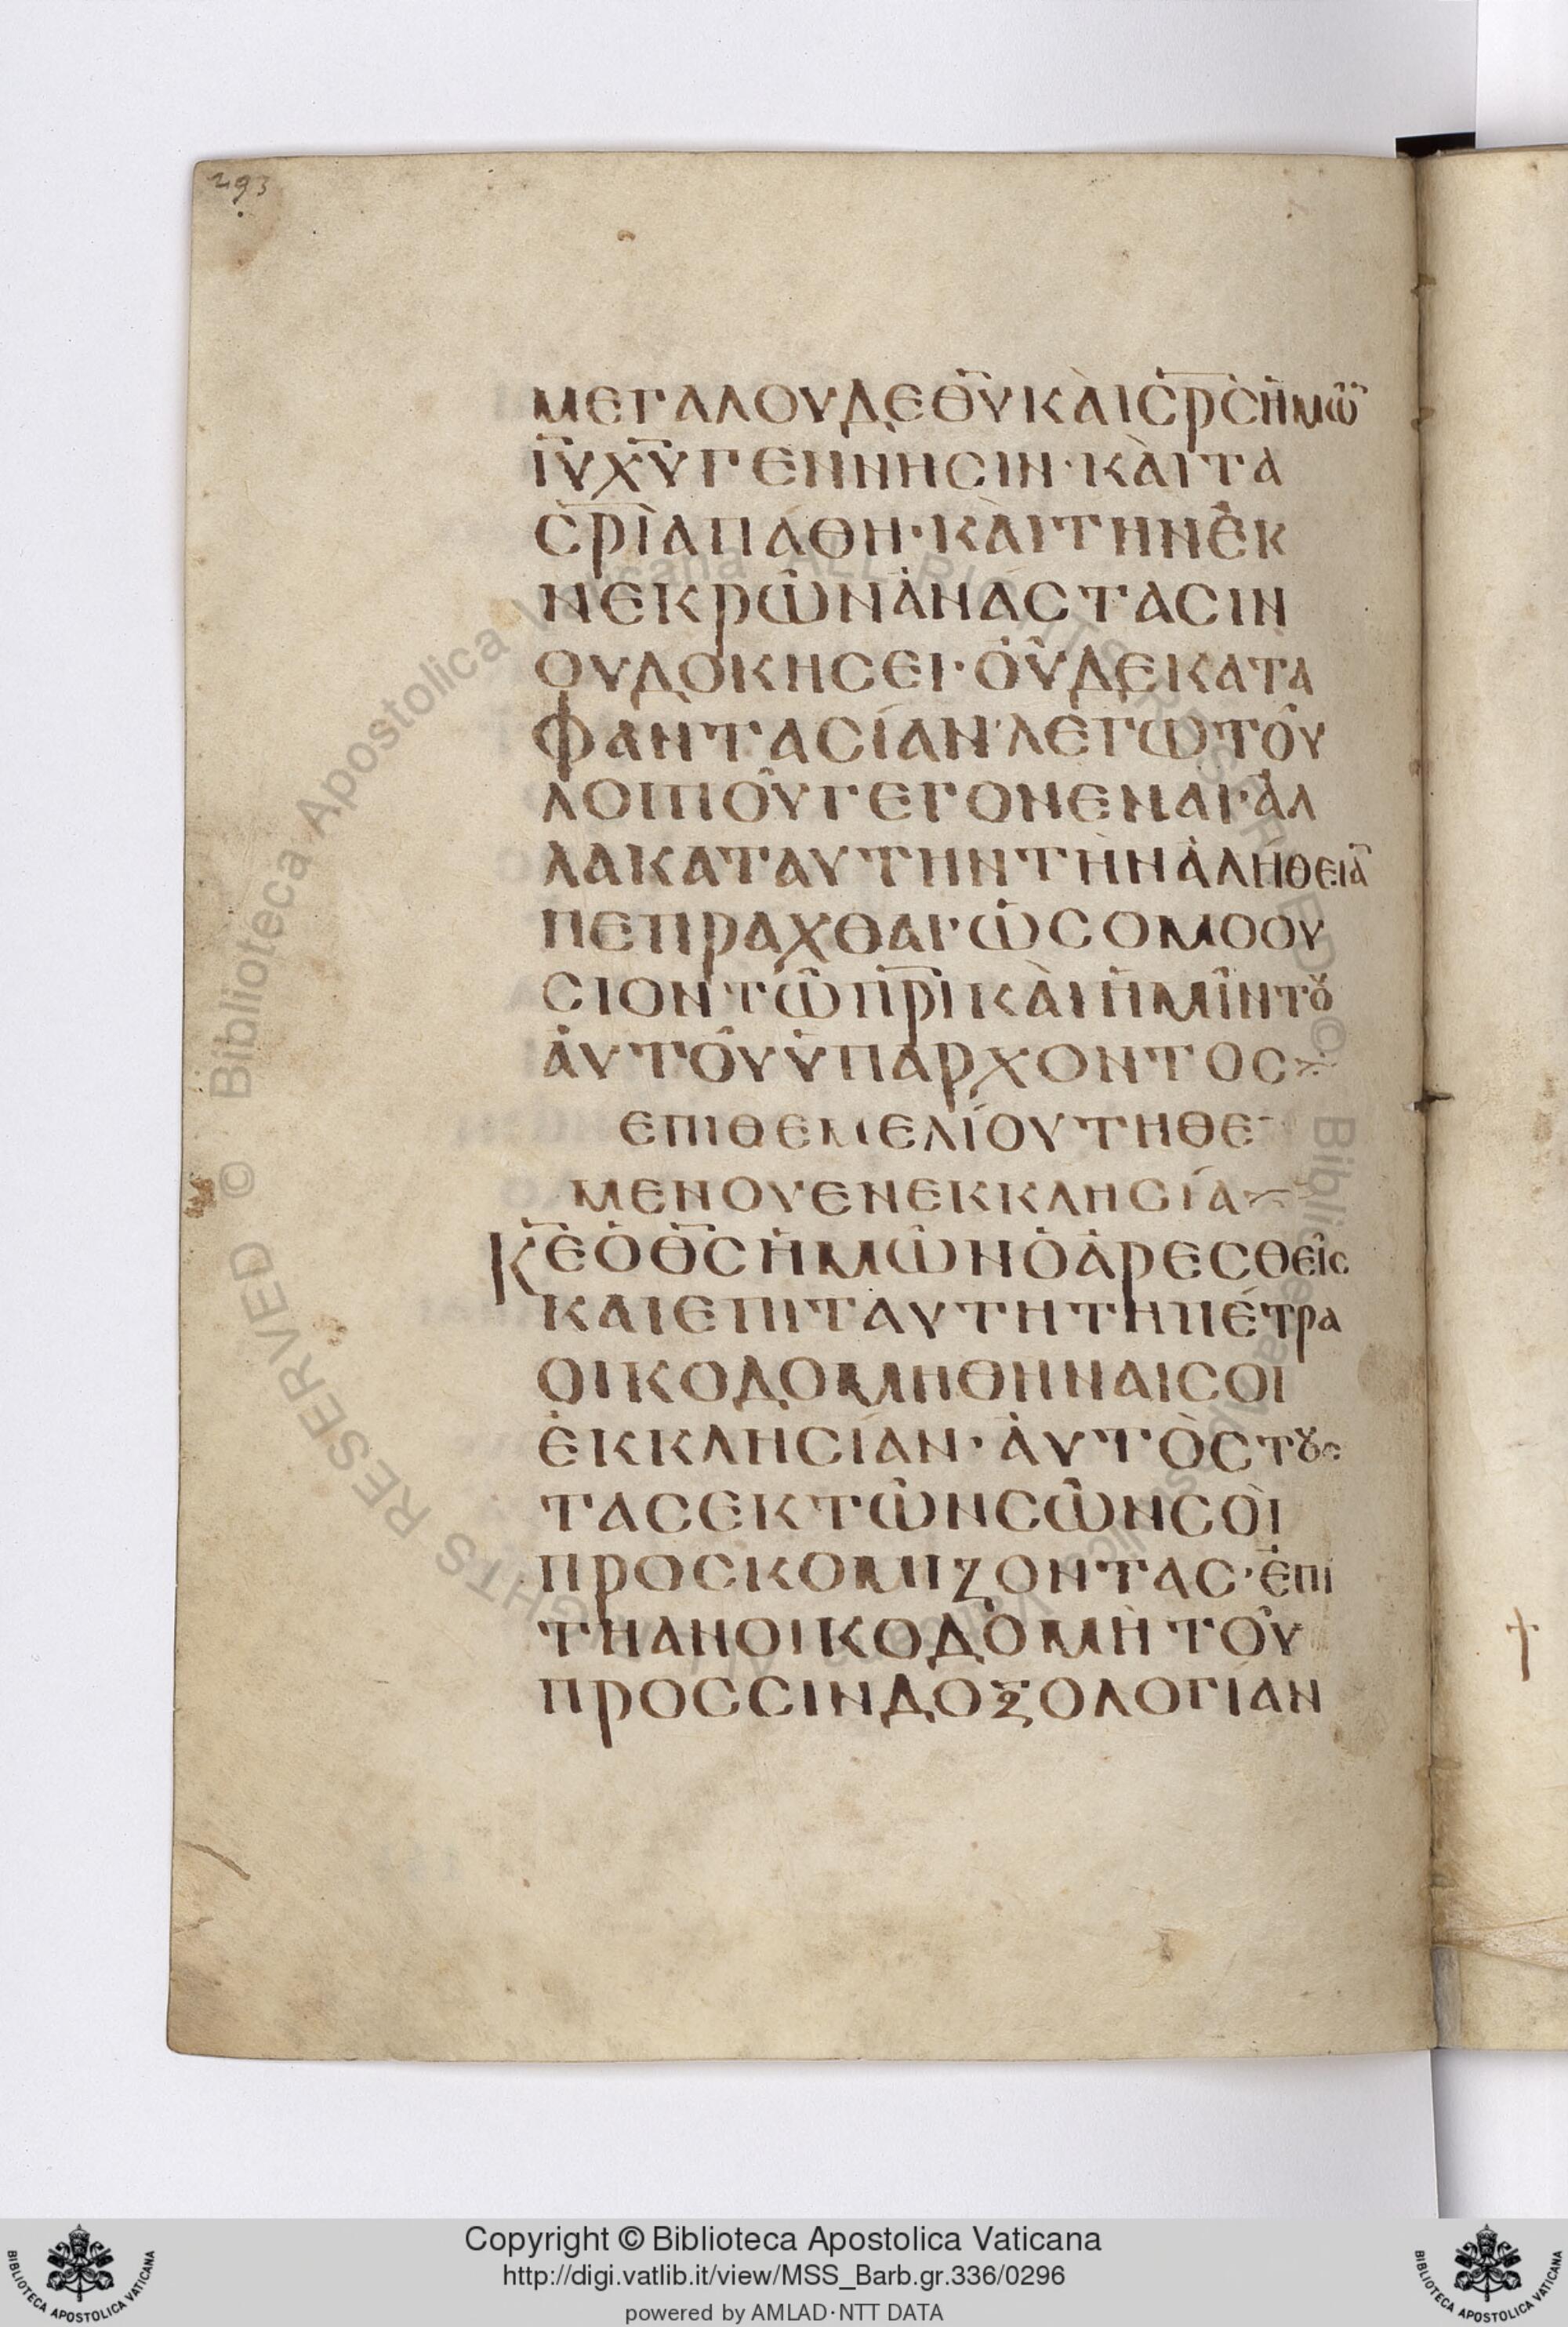 293
ΜΕΓΑΛΟΥΔΕΘ̅Υ̅ΚᾺΙС̅Р̅СΗΜΩ̅
Ι̅Υ̅Χ̅Υ̅ΓΕΝΝΗCΙΝ·ΚᾺΙΤΑ
C̅Ρ̅ΙΑΠΆΘΗ·ΚᾺΙΤΗΝΕΚ
ΝΕΚΡΩΝΑΝΆCΤΑCΙΝ
ΟΥΔΟΚΗCΕΙ·ΟΥΔΕΚΑΤΑ
ΦΑΝΤΑCΊΑΝ·ΛΈΓΩΤΟΥ
ΛΟΙΠΟΥΓΕΓΟΝΕΝΑΙ·ΑΛ
ΛΑΚΑΤΑΥΤΗΝΤῊΝΑΛΉΘΕΙΑ̅
ΠΕΠΡΑΧΘΑΙ·ΩCΟΜΟΟΥ
CΙΟΝΤΩΠ̅Ρ̅ΙΚᾺΙΗΜΙΝΤȢ
ΑΥΤΟΥΥΠΆΡΧΟΝΤΟC
ΕΠΙΘΕΜΕΛΊΟΥΤΗΘΕ
ΜΕΝΟΥΕΝΕΚΚΛΗCΊΑ
Κ̅Ε̅ΟΘ̅C̅ΗΜΩΝΟΑΡΕCΘΕΙC
ΚΑΙΕΠΙΤΑΥΤΗΤΗΠΈΤΡΑ
ΟΙΚΟΔΟΜΗΘΗΝΑΙCΟΙ
ΕΚΚΛΗCΊΑΝ·ΑΥΤῸCΤȢC
ΤΑCΕΚΤΩΝCΩΝCῸΙ
ΠΡΟCΚΟΜΙΖΟΝΤΑC·ΕΠΙ
ΤΗΑΝΟΙΚΟΔΟΜῊΤΟΥ
ΠΡΟCCΙΝΔΟΞΟΛΟΓΊΑΝ
© Biblioteca Apostolica Vaticana ALL RIGHTS RESERVED
© Biblioteca Apostolica Vaticana ALL RIGHTS RESERVED
Copyright © Biblioteca Apostolica Vaticana
http://digi.vatlib.it/view/MSS_Barb.gr.336/0296
powered by AMLAD·NTT DATA
BIBLIOTECA APOSTOLICA VATICANA
BIBLIOTECA APOSTOLICA VATICANA